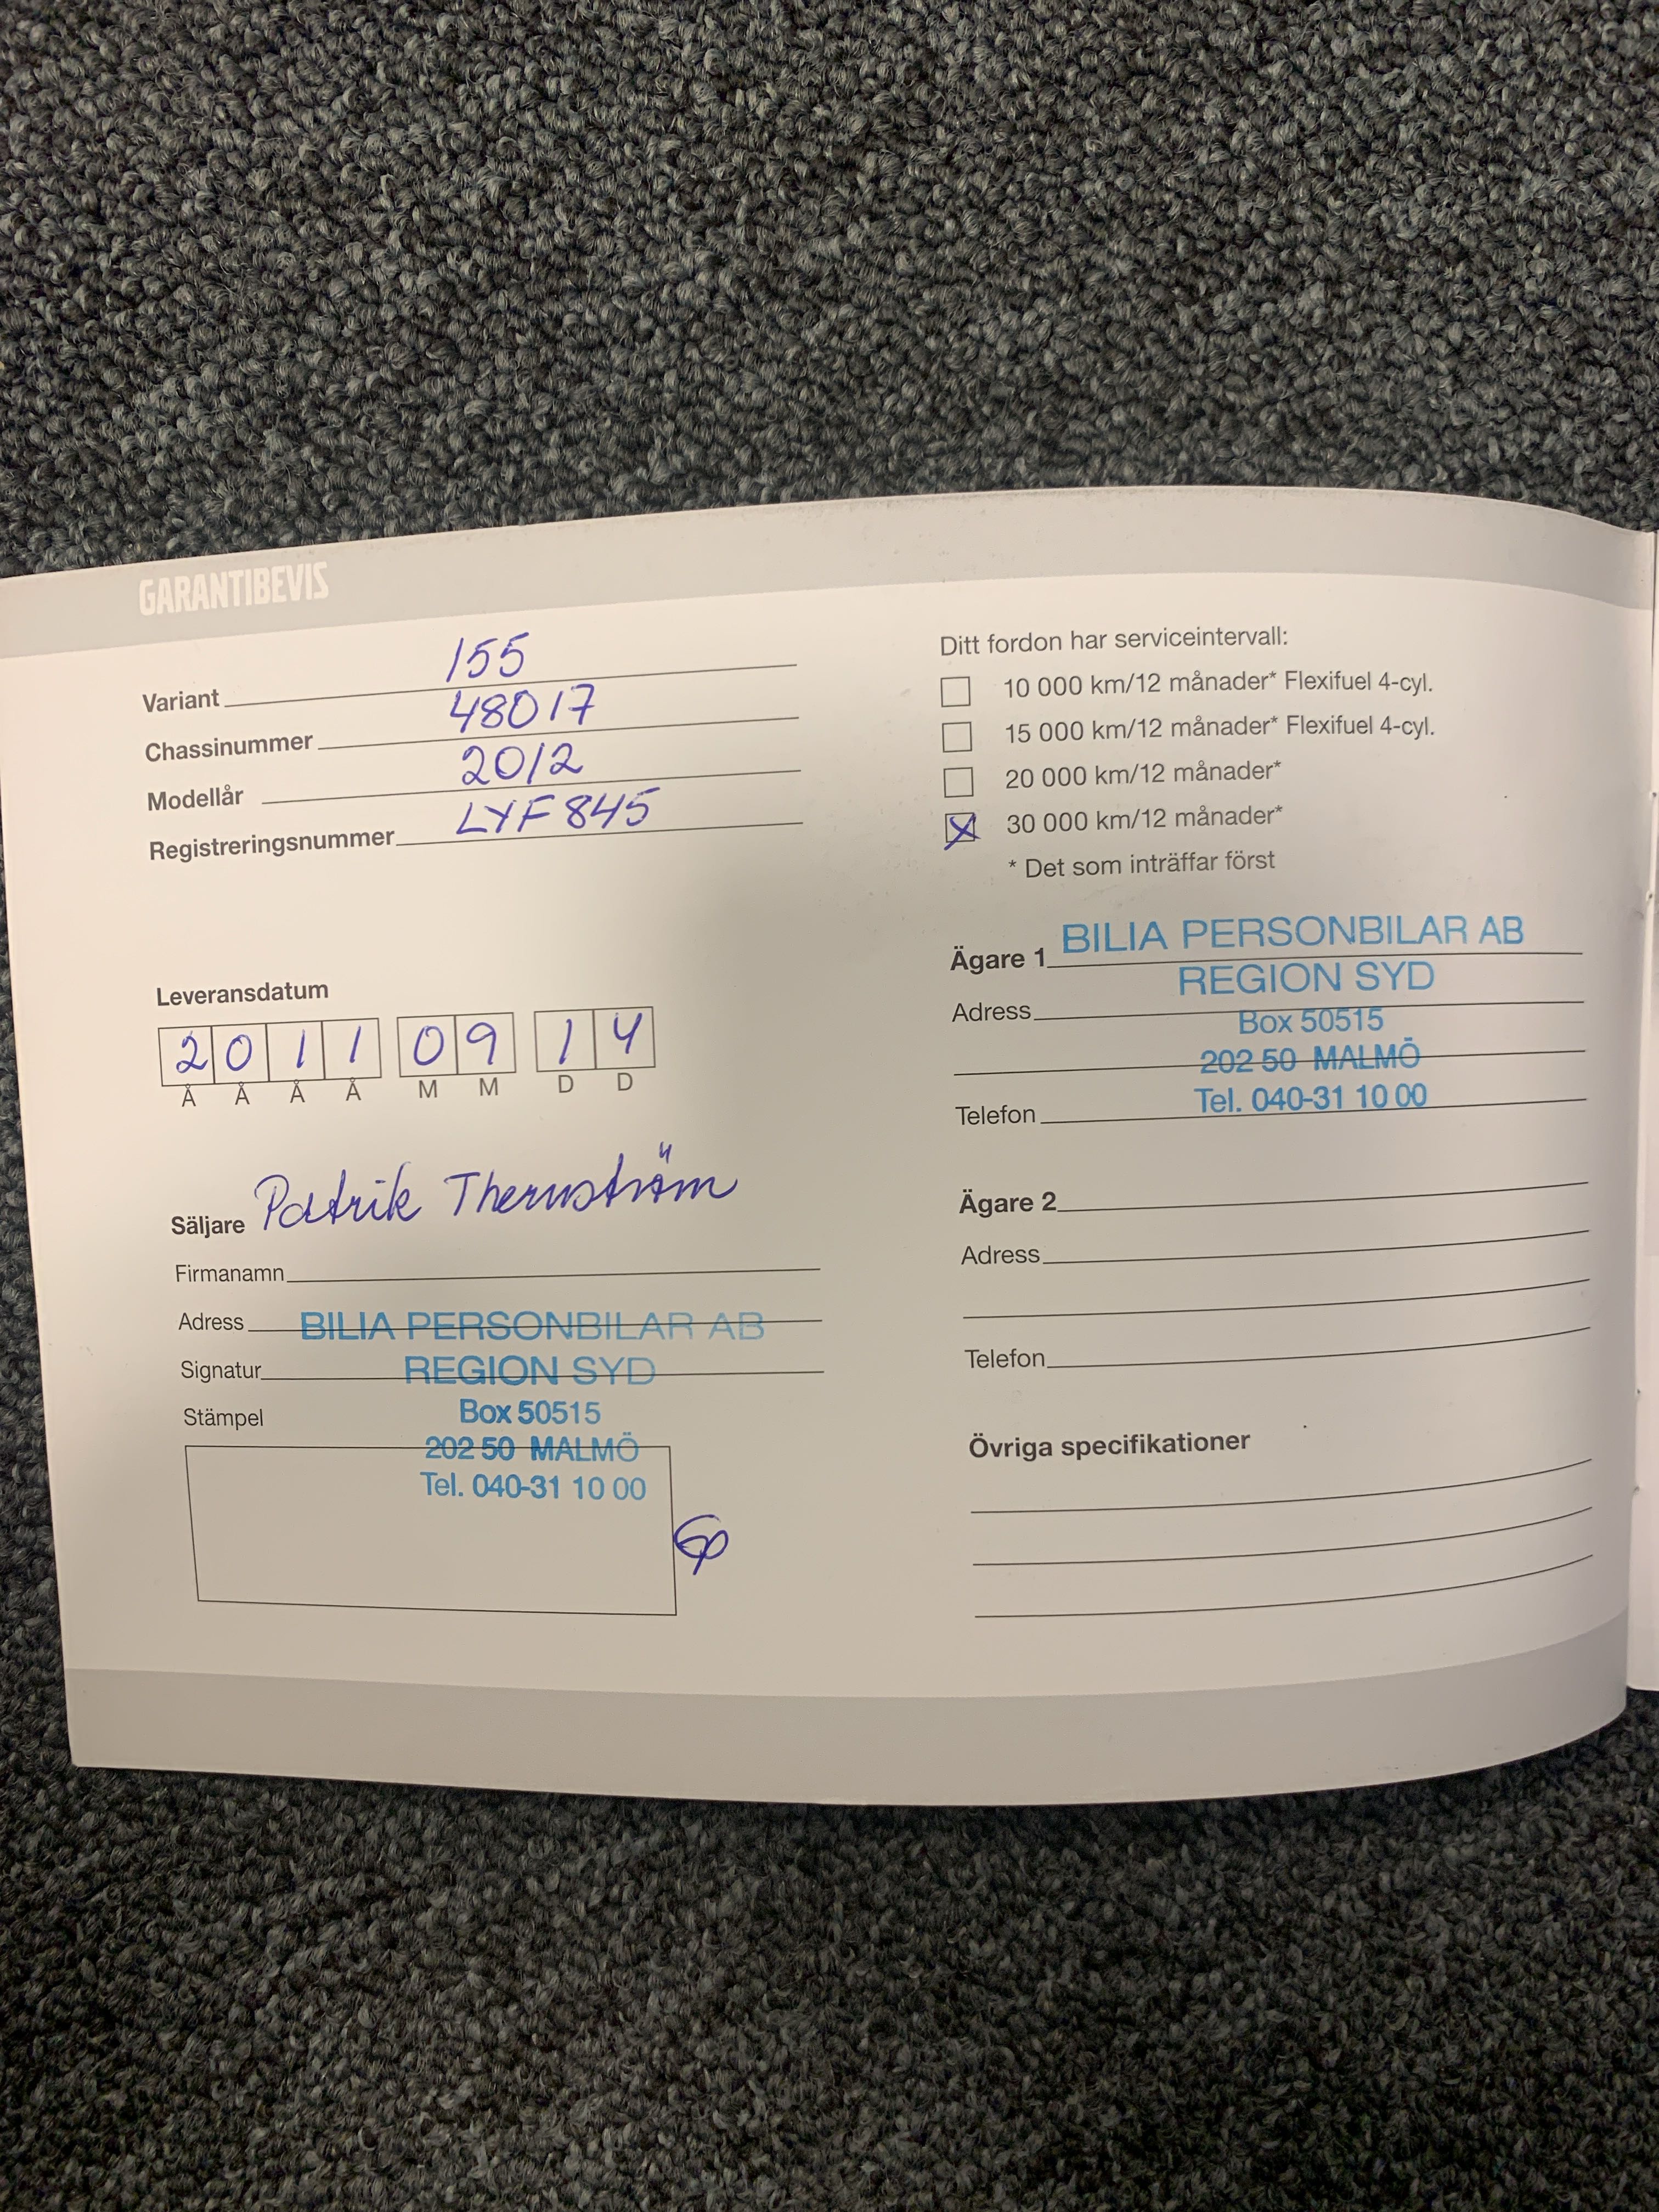 GARANTIBEVIS
Variant 155
Chassinummer 48017
Modellår 2012
Registreringsnummer LYF845
Leveransdatum
2 0 1 1 0 9 1 4
Å Å Å Å M M D D
Säljare Patrik Thernström
Firmanamn
Adress BILIA PERSONBILAR AB
Signatur REGION SYD
Stämpel Box 50515
202 50 MALMÖ
Tel. 040-31 10 00
Ditt fordon har serviceintervall:
10 000 km/12 månader* Flexifuel 4-cyl.
15 000 km/12 månader* Flexifuel 4-cyl.
20 000 km/12 månader*
X 30 000 km/12 månader*
* Det som inträffar först
Ägare 1 BILIA PERSONBILAR AB
REGION SYD
Adress Box 50515
202 50 MALMÖ
Telefon Tel. 040-31 10 00
Ägare 2
Adress
Telefon
Övriga specifikationer